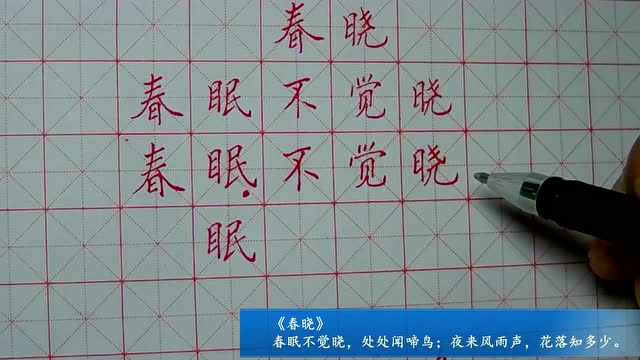 春晓
春眠不觉晓
春眠不觉晓
眠
《春晓》
春眠不觉晓，处处闻啼鸟；夜来风雨声，花落知多少。